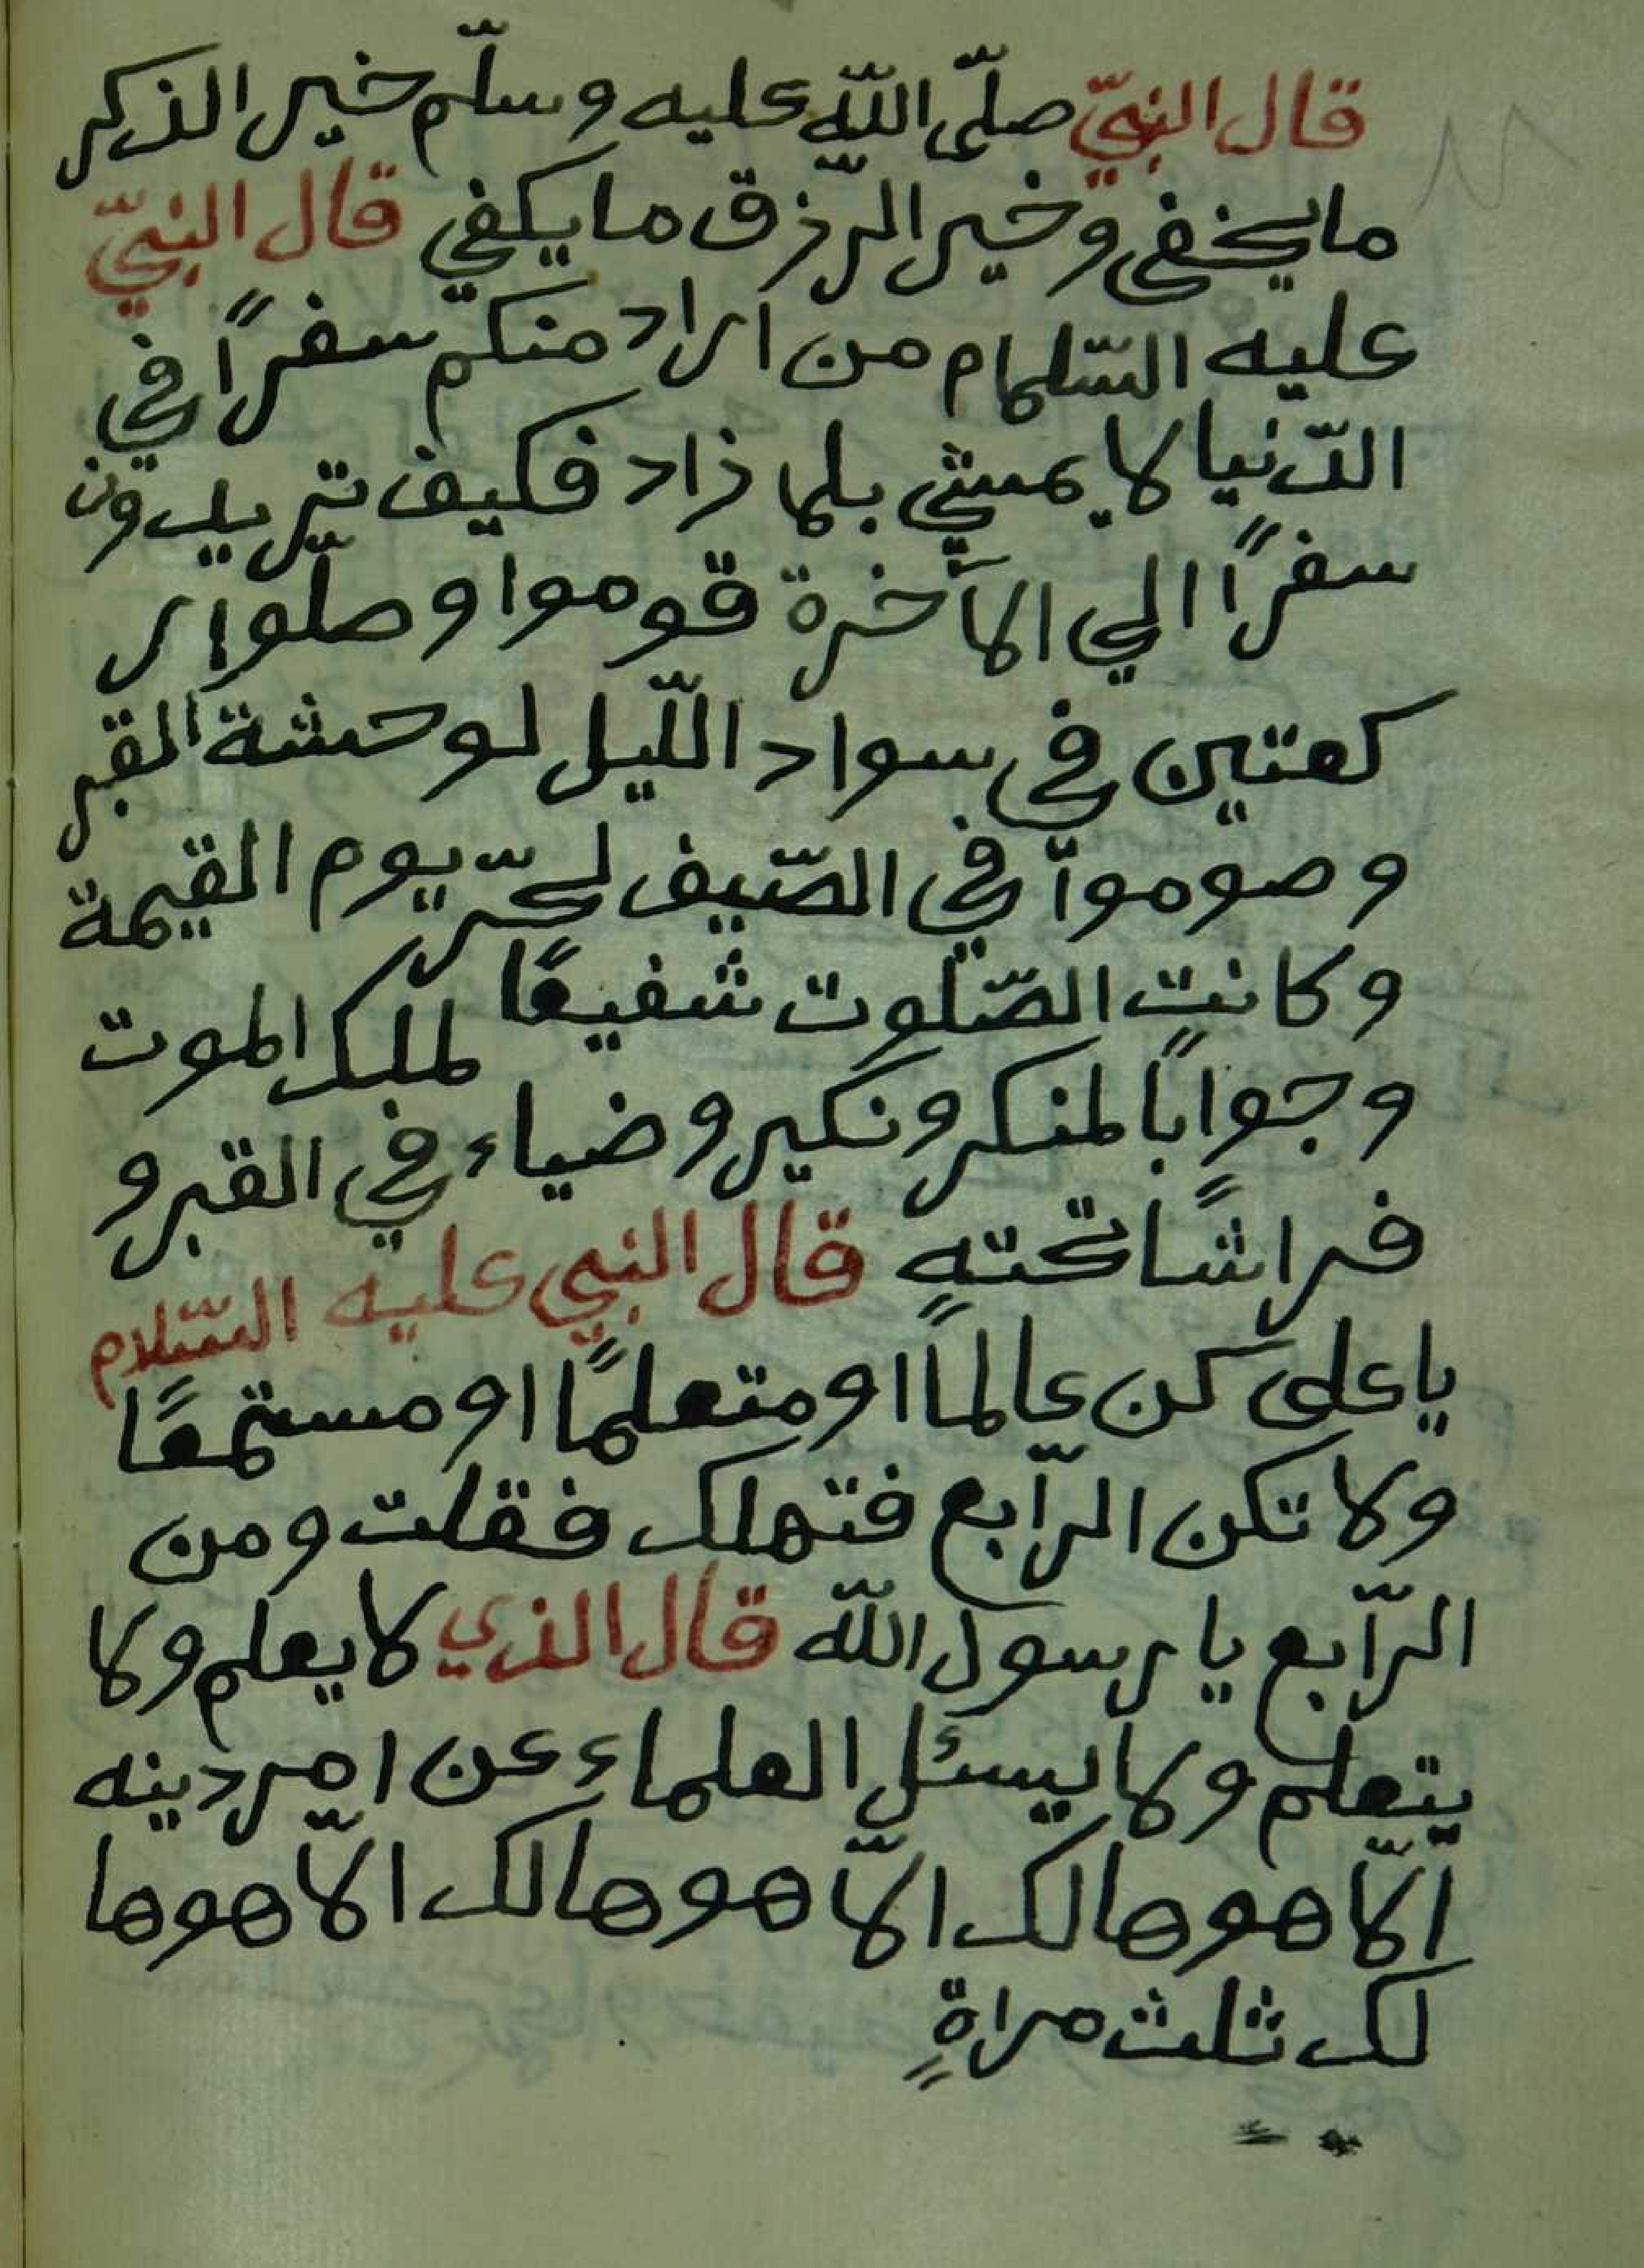 قال النبيّ صلّى اللّه عليه وسلّم خير الذكر
ما يخفى وخير الرّزق ما يكفي قال النبيّ
عليه السّلام من اراد منكم سفرًا في
الدّنيا لا يمشي بلا زاد فكيف تريدون
سفرًا الي الآخرة قوموا وصلّوا ر
كعتين في سواد اللّيل لوحشة القبر
وصوموا في الصّيف لحرّ يوم القيمة
وكانت الصّلوت شفيعًا لملك الموت
وجوابًا لمنكر ونكير وضياء في القبر و
فراشًا تحتهٍ قال النبي عليه السّلام
يا على كن عالمًا او متعلمًا او مستمعًا
ولا تكن الرّابع فتهلك فقلت ومن
الرّابع يا رسول اللّه قال الذي لا يعلم ولا
يتعلم ولا يسئل العلماء عن امر دينه
الّا هو هالك الّا هو هالك الّا هو ها
لك ثلث مراةٍ